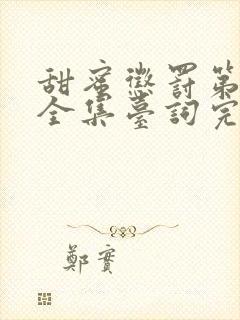 甜蜜懲罰第
全集臺詞完
鄭實